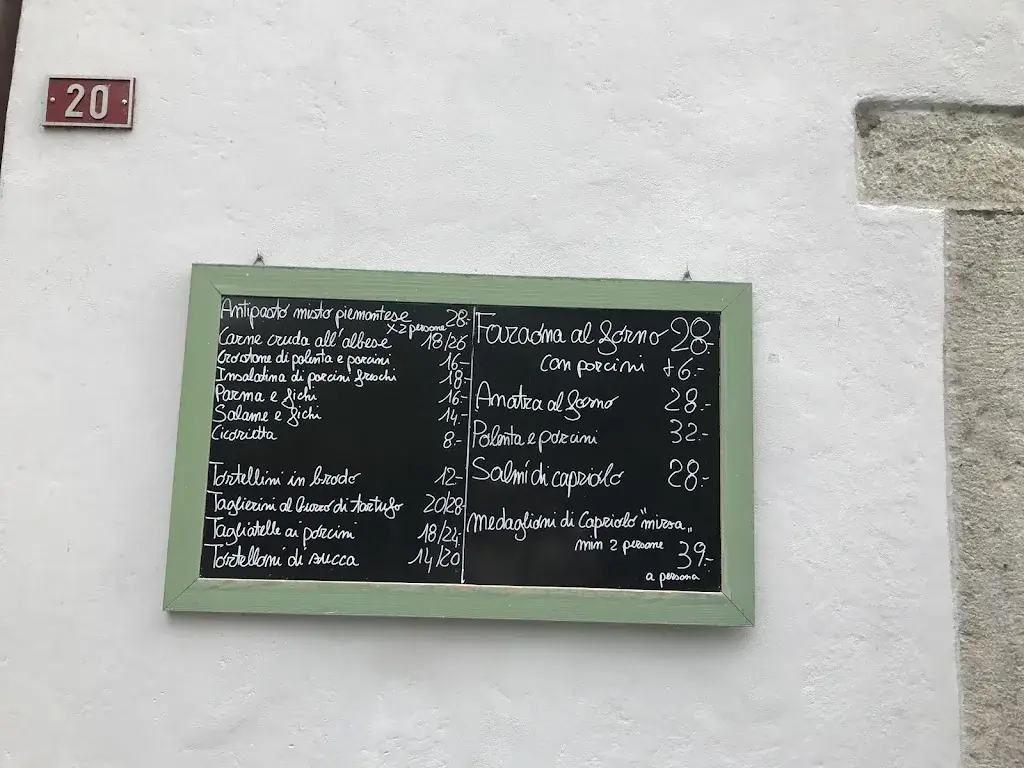 20
Antipasto misto piemontese 28.-
x 2 persone
Carne cruda all'albese 18/26
Crostone di polenta e porcini 16.-
Insalatina di porcini freschi 18.-
Parma e fichi 16.-
Salame e fichi 14.-
Cicorietta 8.-
Tortellini in brodo 12.-
Taglierini al burro di tartufo 20/28
Tagliatelle ai porcini 18/24
Tortelloni di zucca 14/20
Faraona al forno 28.-
con porcini +6.-
Anatra al forno 28.-
Polenta e porcini 32.-
Salmì di capriolo 28.-
Medaglioni di Capriolo "mirza"
min 2 persone 39.-
a persona